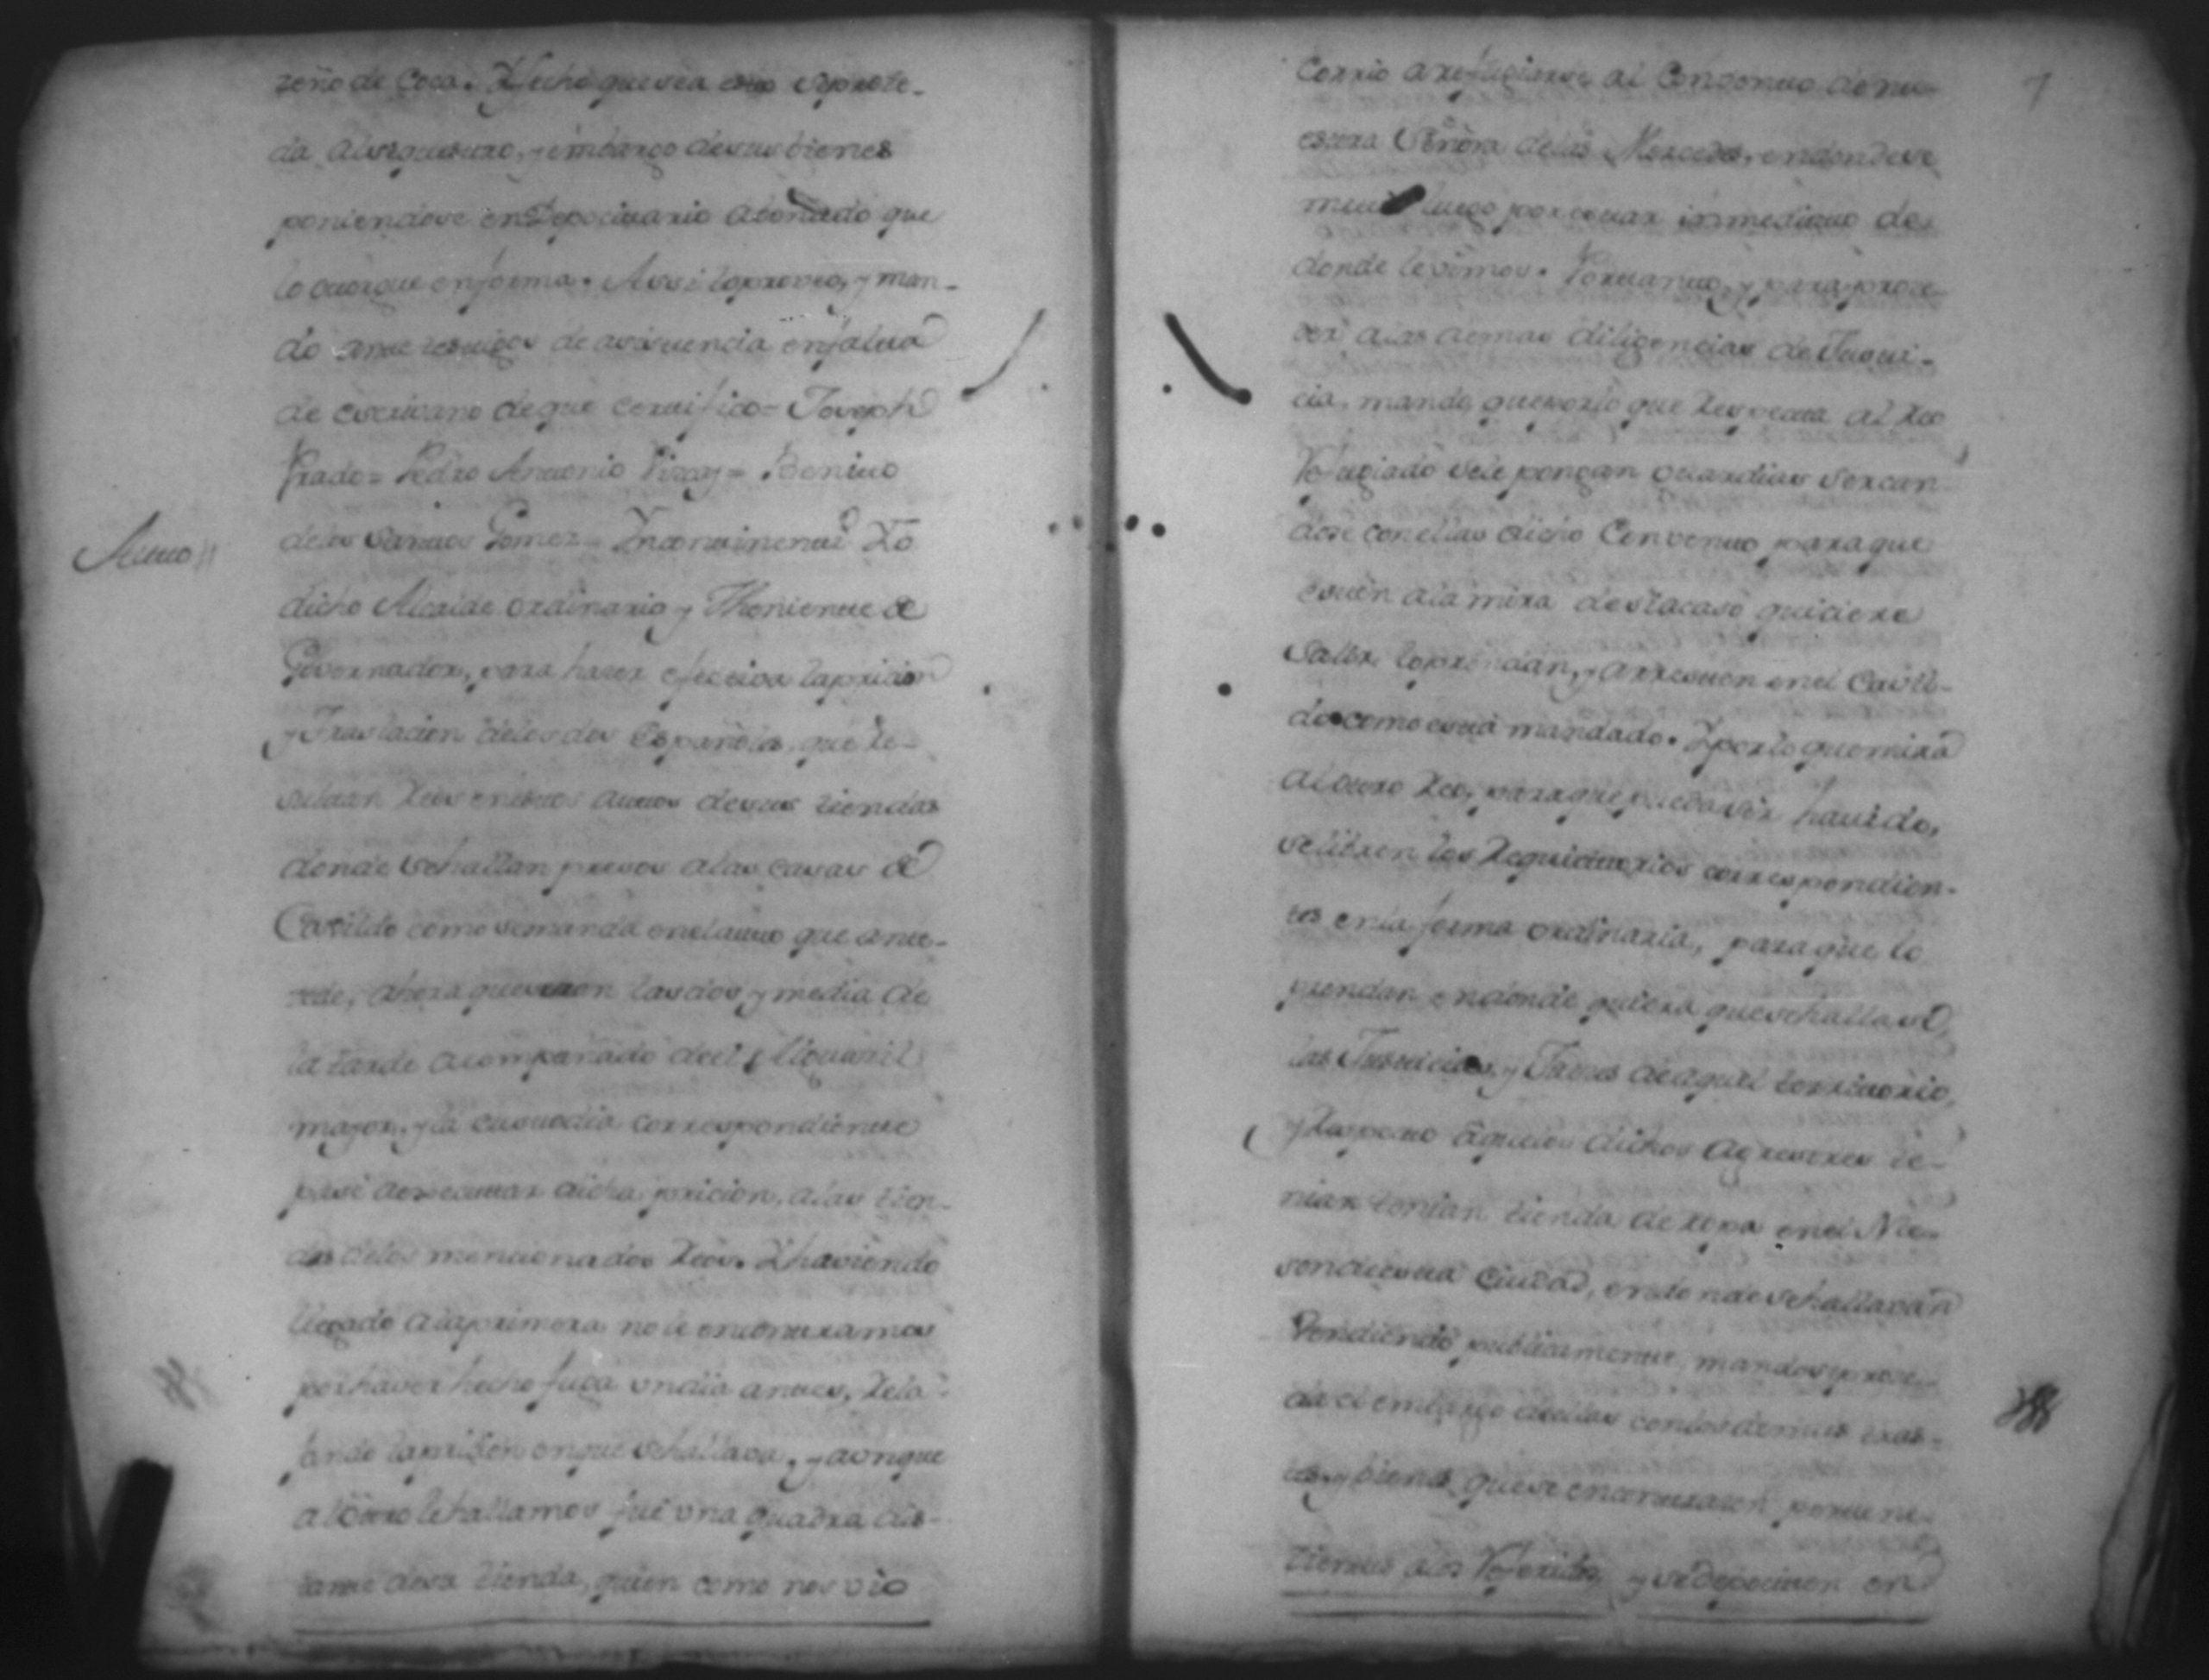 zeño de Coca. Y fecho que sea esto seproce-
da alseguestro, y embargo desus bienes
poniendose en Depocitario abonado que
lo otorgue enforma. Assi lo proveo, y man-
do ante testigos de asistencia enfalta
de escrivano deque certifico = Joseph
Prado = Pedro Antonio = Benito
delos Santos Gomez = Incontinenti Yo
Autto
dicho Alcalde ordinario y Theniente de
Governador, para hacer efectiva lapricion
y Traslacion delos dos Españoles, que re-
sultan Reos enestos autos desus tiendas
donde sehallan presos alas casas de
Cavildo como semanda enelauto que ante-
cede, ahora queseran las dos y media de
la tarde acompañado deel Alguasil
mayor, y la custodia correspondiente
pasé aexecutar dicha pricion, alas tien-
das delos mencionados Reos. Y haviendo
llegado alaprimera no le encontramos
por haver hecho fuga undia antes,
lando laprision enque sehallava, y aunque
alotro lehallamos fue una quadra dis-
tante desu tienda, quien como nos vio
7
Corrio arefugiarse al Convento de nu-
estra Señora delas Mercedes, endondese
metió luego por estar inmediato de
donde levimos. Portanto, y para proce-
der alas demas diligencias de Justi-
cia, mando, queporlo que respecta al Reo
Refugiado sele pongan guardias sercan-
dose conellas dicho Convento paraque
estén alamira desiacaso quiciere
Salir loprendan, y arresten enel Cavil-
do como está mandado. Y porlo quemira
alotro Reo, paraque pueda ser havido,
selibren los Requicitorios correspondien-
tes enla forma ordinaria, paraque lo
prendan endonde quiera quesehallase,
las Justicias, y Jueces deaquel territorio,
y Respecto aquelos dichos agresores te-
nian tenian tienda de ropa enel Me-
son deesta Ciudad, endondesehallavan
Vendiendo publicamente, mando seproce-
da el embargo deellas conlosdemas tras-
tes, y bienes quese encontraren pertene-
cientes alos Referidos, y sedepociten en